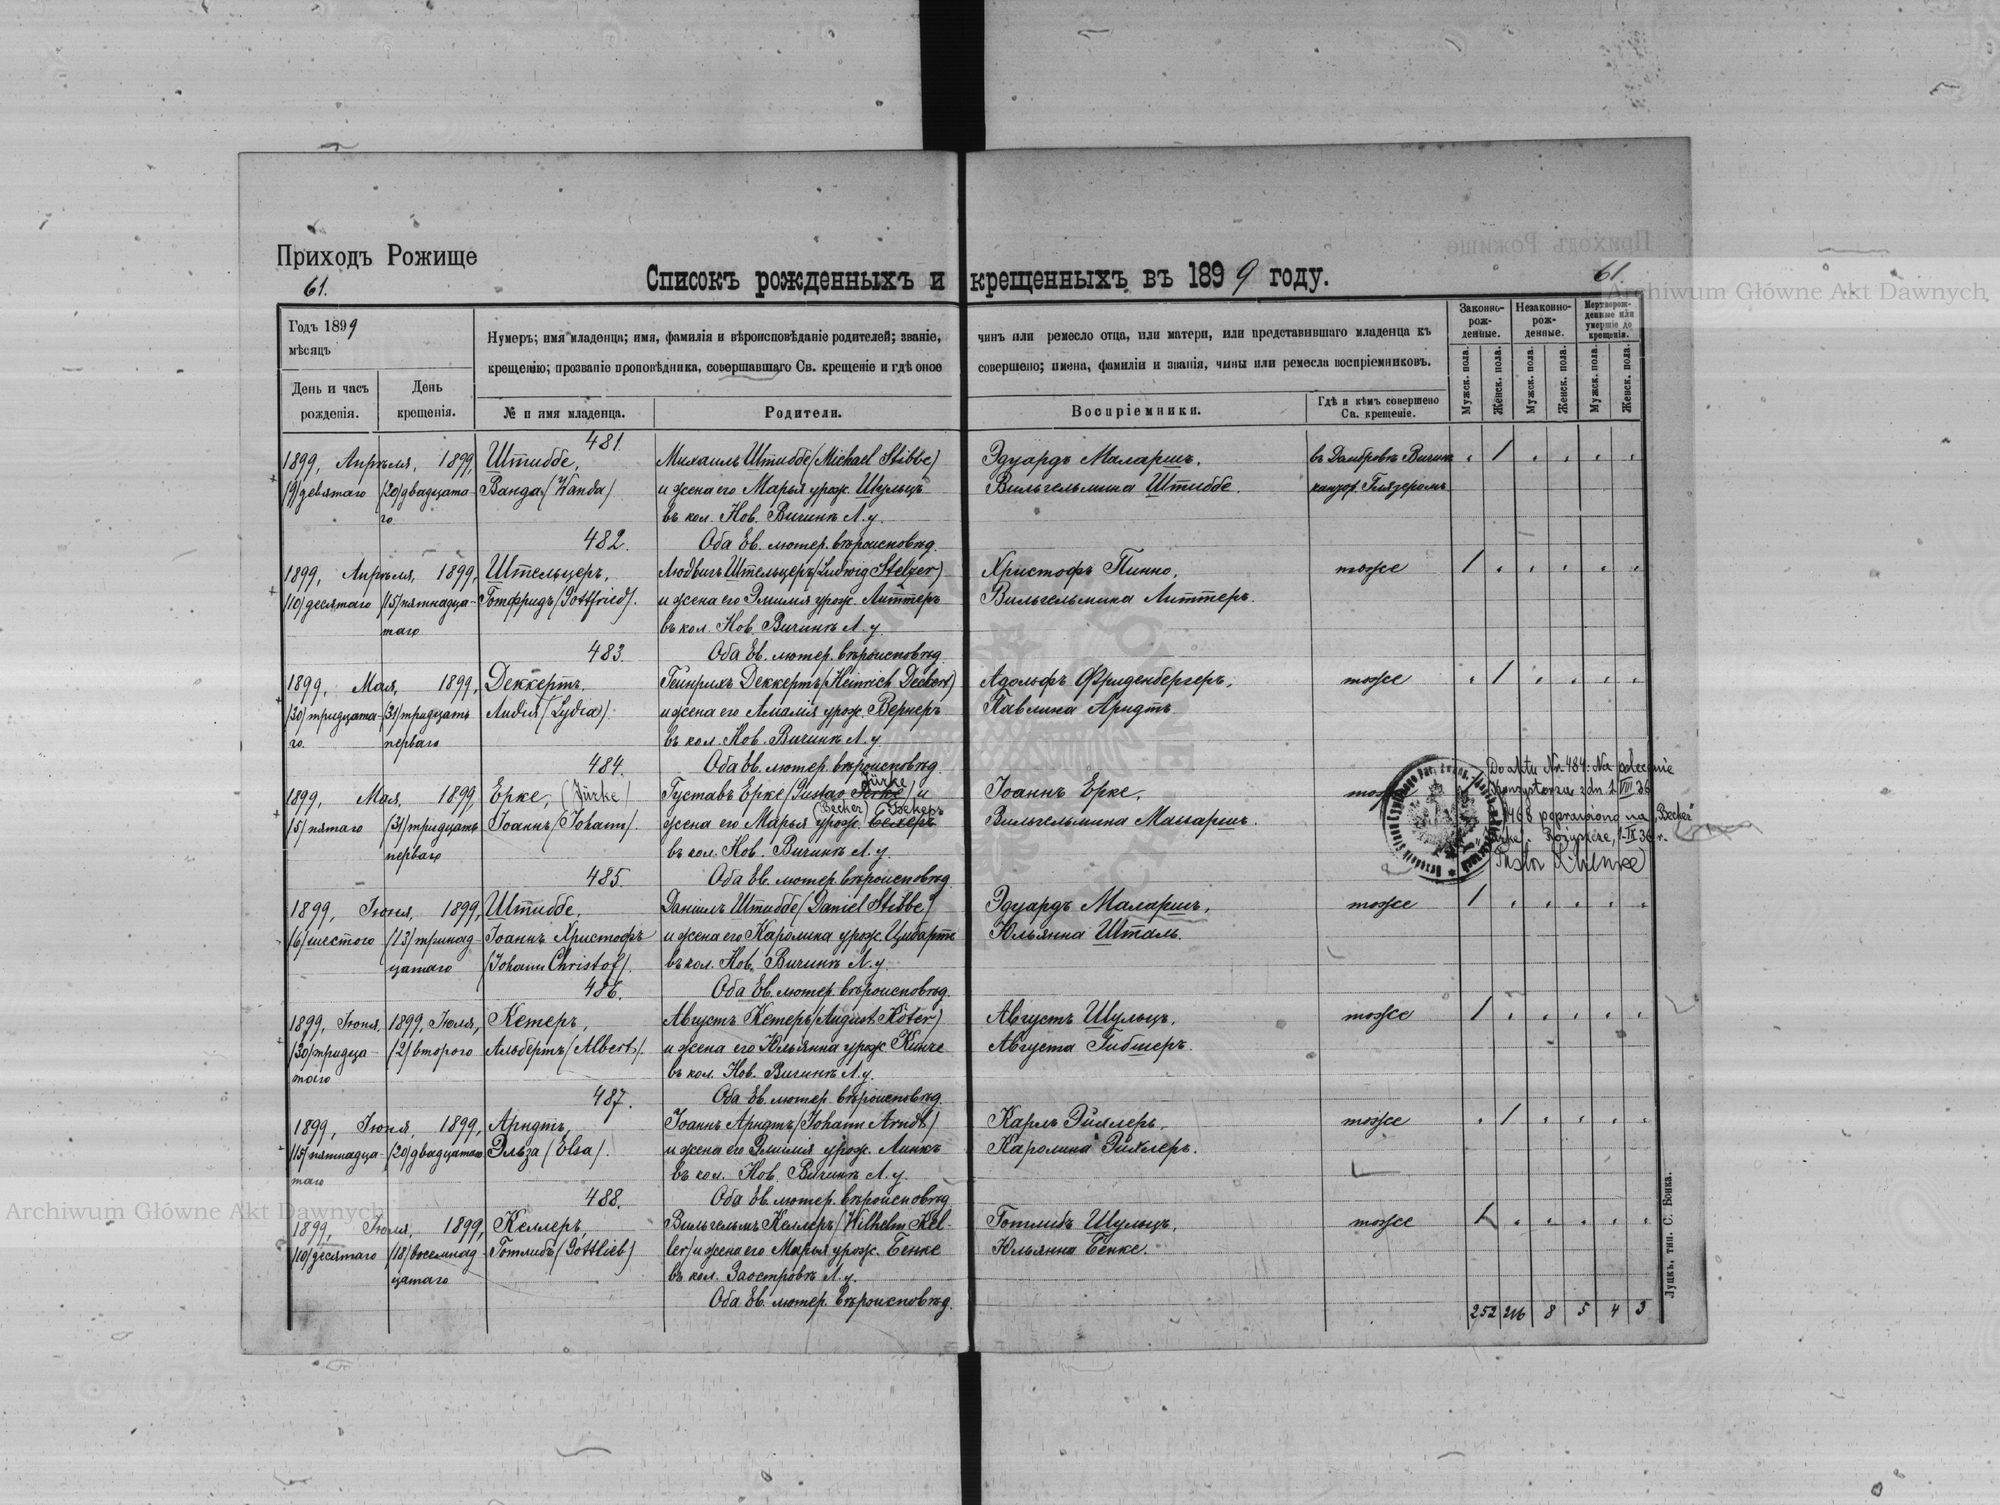 Приходъ Рожище
61.
61.
Списокъ рожденныхъ и крещенныхъ въ 1899 году.
Годъ 1899
мѣсяцъ
День и часъ рожденія.
День крещенія.
Нумеръ; имя младенца; имя, фамилія и вѣроисповѣданіе родителей; званіе, чинъ или ремесло отца, или матери, или представившаго младенца къ
крещенію; прозваніе проповѣдника, совершавшаго Св. крещеніе и гдѣ оное совершено; имена, фамиліи и званія, чины или ремесла воспріемниковъ.
№ и имя младенца.
Родители.
Воспріемники.
Гдѣ и кѣмъ совершено Св. крещеніе.
Законно-рож-денные.
Незаконно-рож-денные.
Мертворож-денные или умершіе до крещенія.
Мужск. пола.
Женск. пола.
Мужск. пола.
Женск. пола.
Мужск. пола.
Женск. пола.
481.
1899, Апрѣля, 1899, Штиббе, Михаилъ Штиббе (Michael Stibbe) Эдуардъ Маларшъ, въ Домбровк Вичин 1
(9) девятаго (20) двадцата- Ванда (Wanda) и жена его Марья урож. Шульцъ Вильгельмина Штиббе. кантор. Глязеромъ
го въ кол. Нов. Вичинѣ Л. у.
482. Оба Ев. лютер. вѣроисповѣд.
1899, Апрѣля, 1899, Штельцеръ, Людвигъ Штельцеръ (Ludwig Stelzer) Христофъ Пинно, тоже 1
(10) десятаго (15) пятнадца- Готфридъ (Gottfried). и жена его Эмилія урож. Литтеръ Вильгельмина Литтеръ.
таго въ кол. Нов. Вичинѣ Л. у.
483. Оба Ев. лютер. вѣроисповѣд.
1899, Мая, 1899, Деккертъ. Гейнрихъ Деккертъ (Heinrich Deckert) Адольфъ Фриденбергеръ, тоже 1
(30) тридцата- (31) тридцать Лидія (Lydia) и жена его Амалія урож. Вернеръ Павлина Арндтъ
го. перваго въ кол. Нов. Вичинѣ Л. у.
484. Оба Ев. лютер. вѣроисповѣд.
Jürke
1899, Мая, 1899, Ерке, (Jürke) Густавъ Ерке (Gustav Jerke) и Іоаннъ Ерке,
(Becker) Бекеръ
(5) пятаго (31) тридцать Іоаннъ (Johann). жена его Марья урож. Вильгельмина Маларшъ.
перваго въ кол. Нов. Вичинѣ Л. у.
Do aktu Nr. 484. Na polecenie
Konsystorza z dn. 2 VIII 36
poprawiono na "Becker"
Rożyszcze, 1-IX 36 r.
Pastor
485. Оба Ев. лютер. вѣроисповѣд.
1899, Іюня, 1899, Штиббе, Даніилъ Штиббе (Daniel Stibbe) Эдуардъ Маларшъ, тоже 1
(6) шестого (13) тринад- Іоаннъ Христофъ и жена его Каролина урож. Цибартъ Юльянна Шталь.
цатаго (Johann Christof). въ кол. Нов. Вичинѣ Л. у.
486. Оба Ев. лютер. вѣроисповѣд.
1899, Іюня, 1899, Іюля, Кетеръ, Августъ Кетеръ (August Köter) Августъ Шульцъ, тоже 1
(30) тридца- (2) второго Альбертъ (Albert). и жена его Юльянна урож. Кинче Августа Гибшеръ.
таго въ кол. Нов. Вичинѣ Л. у.
487. Оба Ев. лютер. вѣроисповѣд.
1899, Іюня, 1899, Арндтъ, Іоаннъ Арндтъ (Johann Arndt) Карлъ Эйхлеръ, тоже 1
(15) пятнадца- (20) двадцатаго Эльза (Elsa). и жена его Эмилія урож. Линкъ Каролина Эйхлеръ.
таго въ кол. Нов. Вичинѣ Л. у.
488. Оба Ев. лютер. вѣроисповѣд.
1899, Іюля, 1899, Келлеръ, Вильгельмъ Келлеръ (Wilhelm Kel- Готлибъ Шульцъ, тоже 1
(10) десятаго (18) восемнад- Готлибъ (Gottlieb) ler) и жена его Марья урож. Бенке Юльянна Бенке.
цатаго въ кол. Заостровѣ Л. у.
Оба Ев. лютер. вѣроисповѣд.
252 216 8 5 4 3
Луцкъ, тип. С. Бонка.
Archiwum Główne Akt Dawnych
Archiwum Główne Akt Dawnych